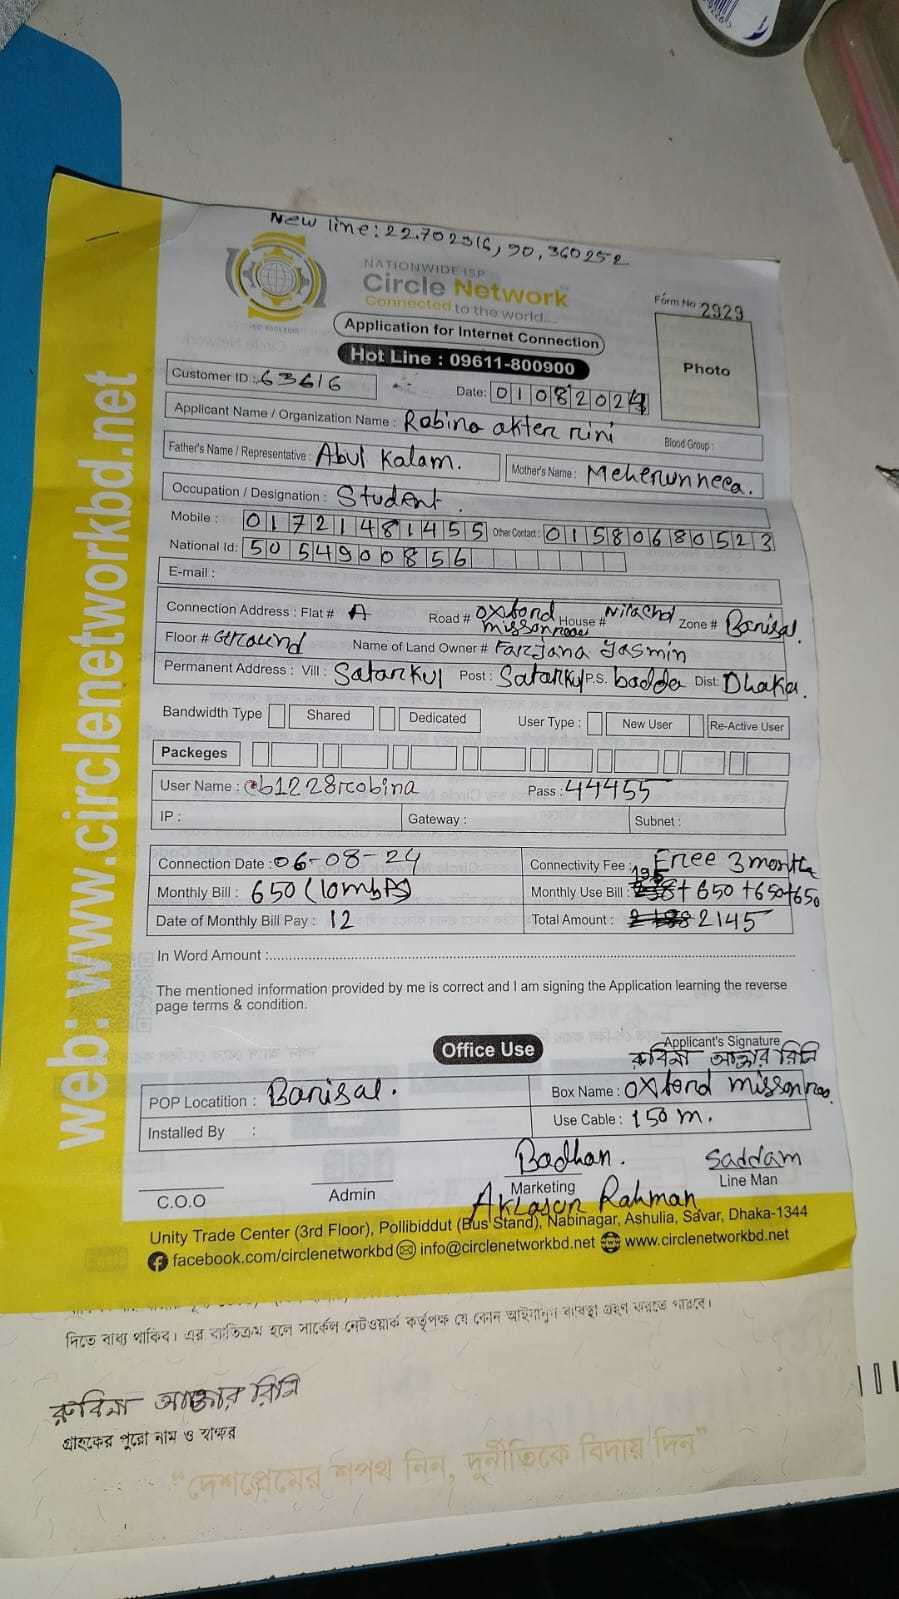 New line: 22.702316, 90.360252
NATIONWIDE ISP
Circle Network
Connected to the world....
Form No 2929
Application for Internet Connection
Hot Line : 09611-800900
Photo
Customer ID : 63616
Date: 01082024
Applicant Name / Organization Name : Robina akter rini
Blood Group :
Father's Name / Representative : Abul Kalam.
Mother's Name : Meherunneca.
Occupation / Designation : Student.
Mobile : 01721481455 Other Contact : 01580680523
National Id: 5054900856
E-mail :
Connection Address : Flat # A Road # oxford missonroad House # Nilachol Zone # Barisal.
Floor # Ground Name of Land Owner # Farjana Yasmin
Permanent Address : Vill : Satarkul Post : Satarkul P.S. badda Dist: Dhaka.
Bandwidth Type Shared Dedicated User Type : New User Re-Active User
Packeges
User Name : cb1228robina Pass : 44455
IP : Gateway : Subnet :
Connection Date : 06-08-24 Connectivity Fee : Free 3 month
Monthly Bill : 650 (10mbps) Monthly Use Bill : 195 + 650 + 650 + 650
Date of Monthly Bill Pay : 12 Total Amount : 2145
In Word Amount :
The mentioned information provided by me is correct and I am signing the Application learning the reverse
page terms & condition.
Office Use
Applicant's Signature
রুবিনা আক্তার রিনি
POP Locatition : Barisal. Box Name : oxford misson
Installed By : Use Cable : 150 m.
Badhan. Saddam
C.O.O Admin Marketing Line Man
Rahman
Unity Trade Center (3rd Floor), Pollibiddut (Bus Stand), Nabinagar, Ashulia, Savar, Dhaka-1344
facebook.com/circlenetworkbd info@circlenetworkbd.net www.circlenetworkbd.net
web: www.circlenetworkbd.net
দিতে বাধ্য থাকিব। এর ব্যতিক্রম হলে সার্কেল নেটওয়ার্ক কর্তৃপক্ষ যে কোন আইনানুগ ব্যবস্থা গ্রহণ করতে পারবে।
রুবিনা আক্তার রিনি
গ্রাহকের পুরো নাম ও স্বাক্ষর
“দেশপ্রেমের শপথ নিন, দুর্নীতিকে বিদায় দিন”